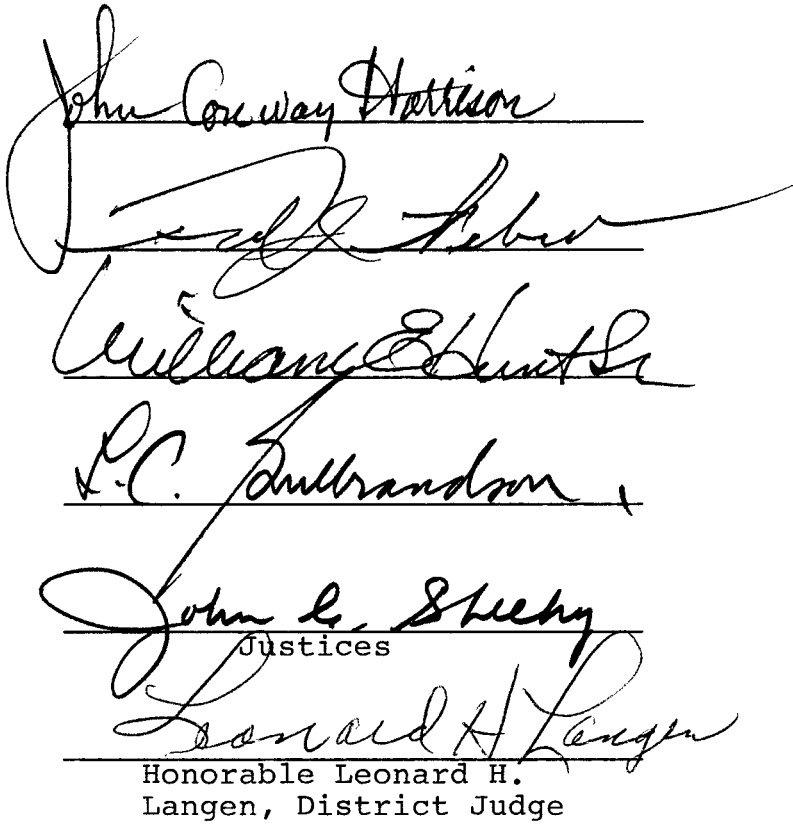 John Conway Harrison
Weber
William E Hunt Sr
L.C. Gulbrandson
John C. Sheehy
Justices
Leonard H Langen
Honorable Leonard H.
Langen, District Judge